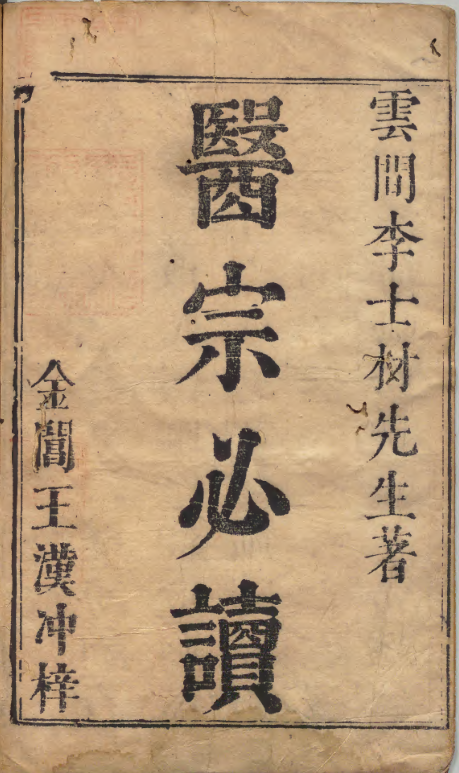 雲間李士材先生著
醫宗必讀
金閶王漢冲梓